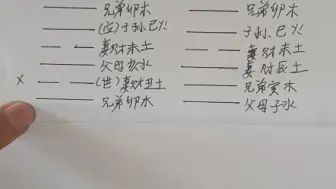 兄弟卯木 兄弟卯木
(应)子孙巳火 子孙巳火
妻财未土 妻财未土
父母亥水 妻财辰土
X (世)妻财丑土 兄弟寅木
兄弟卯木 父母子水